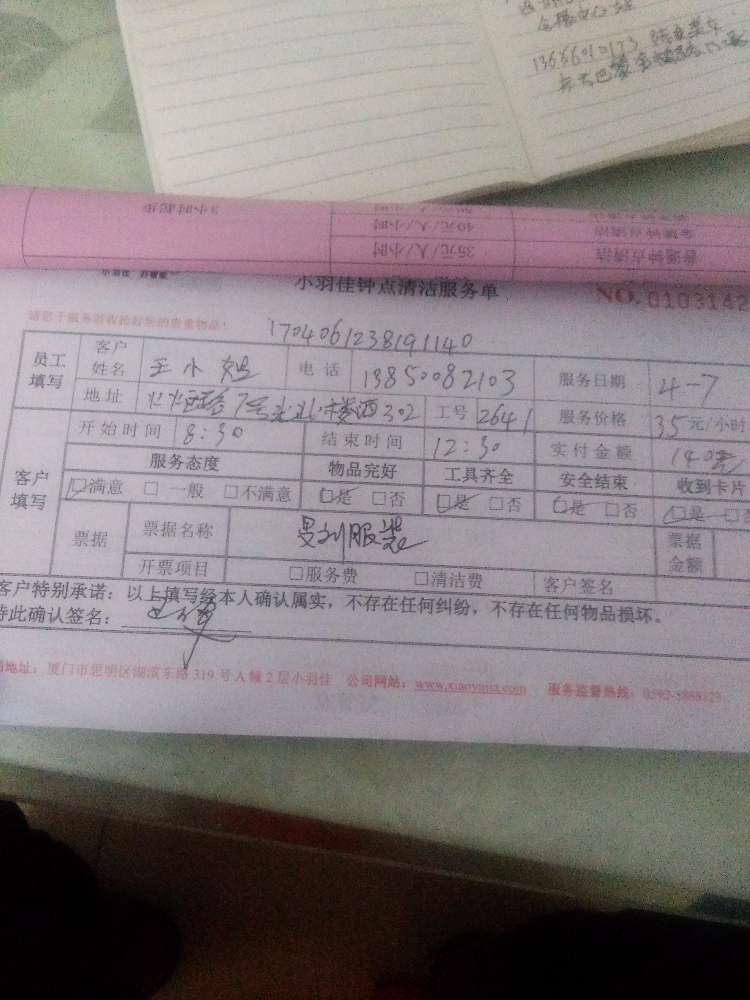 13666010173
3小时起步
40元/人/小时
金牌钟点清洁
35元/人/小时
普通钟点清洁
小羽佳钟点清洁服务单
NO. 0103142
请您于服务前收拾好您的贵重物品!
1704061238191140
员工填写 客户姓名 王小姐 电话 13850082103 服务日期 4-7
地址 7号 302 工号 2641 服务价格 35元/小时
客户填写 开始时间 8:30 结束时间 12:30 实付金额 140
服务态度 物品完好 工具齐全 安全结束 收到卡片
☑满意 □一般 □不满意 ☑是 □否 ☑是 □否 ☑是 □否 ☑是
票据 票据名称 曼刘服装 票据金额
开票项目 □服务费 □清洁费 客户签名
客户特别承诺:以上填写经本人确认属实,不存在任何纠纷,不存在任何物品损坏。
特此确认签名:
地址:厦门市思明区湖滨东路319号A幢2层小羽佳 公司网站:www.xiaoyujia.com 服务监督热线: